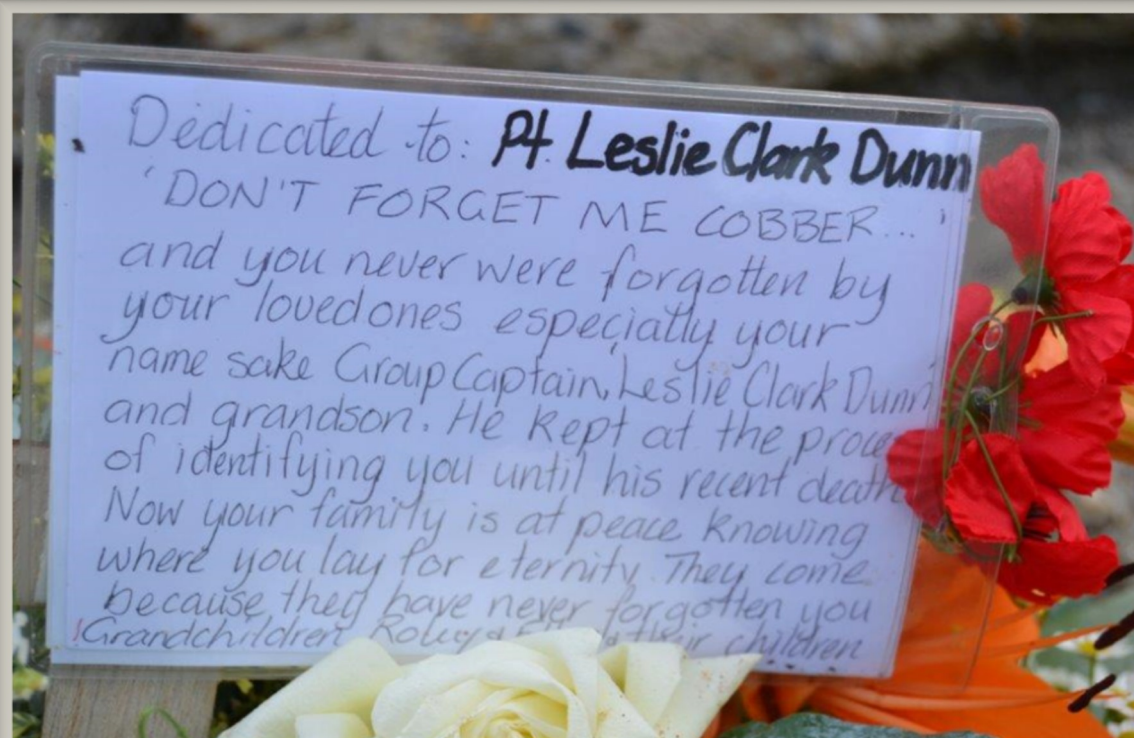 Dedicated to: Pt Leslie Clark Dunn
'DON'T FORGET ME COBBER...'
and you never were forgotten by
your lovedones especially your
name sake Group Captain, Leslie Clark Dunn
and grandson. He kept at the
of identifying you until his recent death
Now your family is at peace knowing
where you lay for eternity. They come
because they have never forgotten you
Grandchildren their children